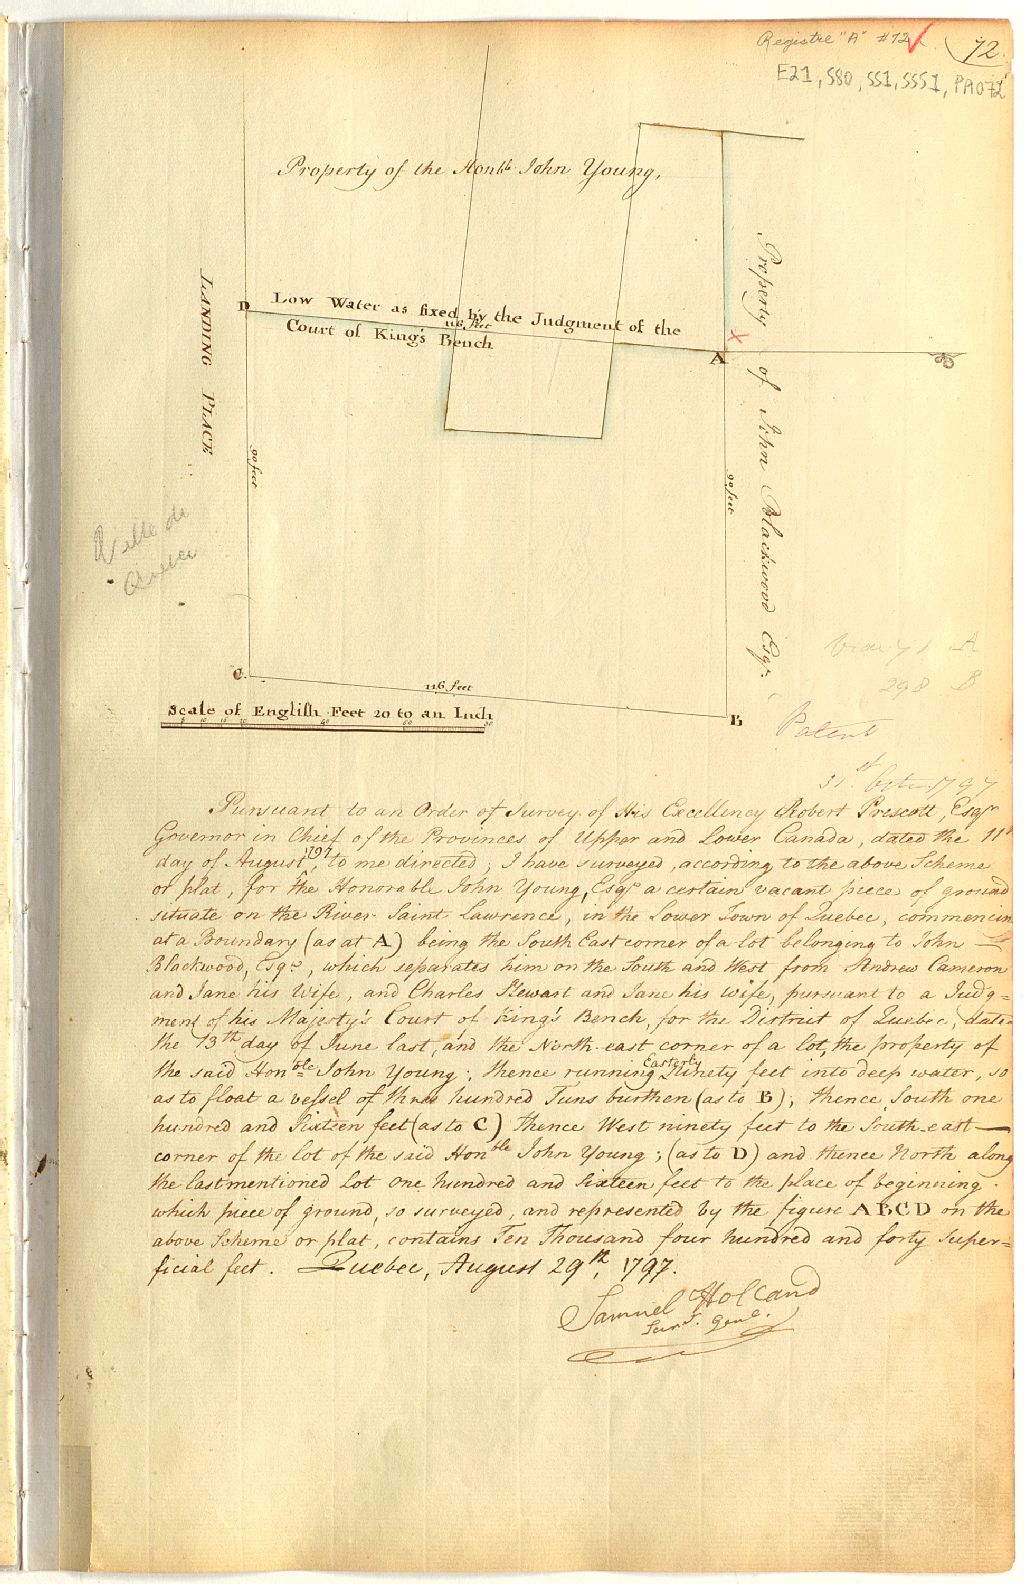 Registre "A" #72
72
E21, S80, SS1, SSS1, PA072
Property of the Honble John Young,
LANDING PLACE
D
Low Water as fixed by the Judgment of the
116 feet
Court of King's Bench
A
Property of John Blackwood Esqr.
90 feet
90 feet
Ville de
Quebec
C.
116 feet
B
Scale of English Feet 20 to an Inch
A
298 B
Patent
31st Octr 1797
Pursuant to an Order of Survey of His Excellency Robert Prescott, Esqr
Governor in Chief of the Provinces of Upper and Lower Canada, dated the 11th
day of August 1797, to me directed; I have surveyed, according to the above Scheme
or plat, for the Honorable John Young, Esqr a certain vacant piece of ground
situate on the River Saint Lawrence, in the Lower Town of Quebec, commencin
at a Boundary (as at A) being the South East corner of a lot belonging to John
Blackwood, Esqr, which separates him on the South and West from Andrew Cameron
and Jane his Wife, and Charles Stewart and Jane his wife, pursuant to a Judg=
ment of his Majesty's Court of King's Bench, for the District of Quebec, dated
the 13th day of June last, and the North east corner of a lot, the property of
the said Honble John Young; thence running Easterly Ninety feet into deep water, so
as to float a vessel of three hundred Tuns burthen (as to B); thence South one
hundred and Sixteen feet (as to C) thence West ninety feet to the South east
corner of the lot of the said Honble John Young; (as to D) and thence North along
the lastmentioned Lot One hundred and Sixteen feet to the place of beginning.
which piece of ground, so surveyed, and represented by the figure ABCD on the
above Scheme or plat, contains Ten Thousand four hundred and forty Super=
ficial feet. Quebec, August 29th, 1797.
Samuel Holland
Survr. Genl.